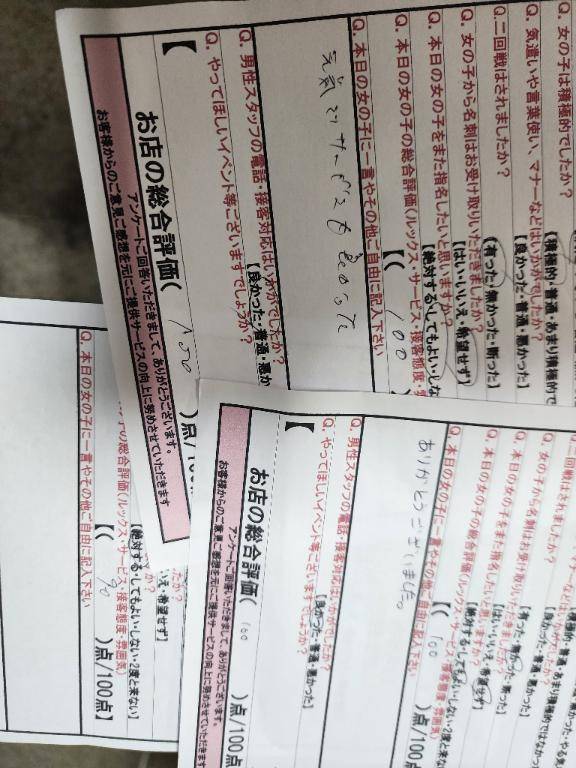 Q. 女の子は積極的でしたか？
【積極的・普通・あまり積極的で
Q. 気遣いや言葉使い、マナーなどはいかがでしたか？
【良かった・普通・悪かった】
Q. 二回戦はされましたか？
【有った・無かった・断った】
Q. 女の子から名刺はお受け取りいただきましたか？
【はい・いいえ・希望せず】
Q. 本日の女の子をまた指名したいと思いますか？
【絶対する・してもよい・しな
Q. 本日の女の子の総合評価(ルックス・サービス・接客態度・雰
【( 100
Q. 本日の女の子に一言やその他ご自由に記入下さい
Q. 男性スタッフの電話・接客対応はいかがでしたか？
【良かった・普通・悪か
Q. やってほしいイベント等ございますでしょうか？
【
お店の総合評価( 100 )点/100
アンケートご回答いただきまして、ありがとうございます。
お客様からのご意見ご感想を元にご提供サービスの向上に努めさせていただきます
二回戦はされましたか？
【有った・無かった・断った】
Q. 女の子から名刺はお受け取りいただきましたか？
【はい・いいえ・希望せず】
Q. 本日の女の子をまた指名したいと思いますか？
【絶対する・してもよい・しない・2度と来な
Q. 本日の女の子の総合評価(ルックス・サービス・接客態度・雰囲気)
【( 100 )点/100
Q. 本日の女の子に一言やその他ご自由に記入下さい
ありがとうございました。
Q. 男性スタッフの電話・接客対応はいかがでしたか？
【良かった・普通・悪かった】
Q. やってほしいイベント等ございますでしょうか？
【
お店の総合評価( 100 )点/100
アンケートご回答いただきまして、ありがとうございます。
お客様からのご意見ご感想を元にご提供サービスの向上に努めさせていただきます
たか？
え・希望せず】
か？
【絶対する・してもよい・しない・2度と来ない】
の総合評価(ルックス・サービス・接客態度・雰囲気)
【( 90 )点/100点】
Q. 本日の女の子に一言やその他ご自由に記入下さい